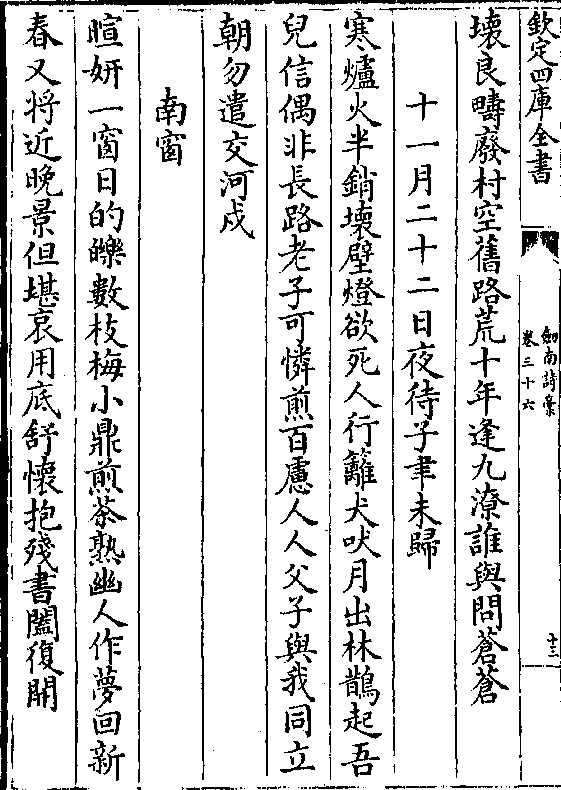 欽定四庫全書
劒南詩稾
卷三十六
十三
壊良疇廢村空舊路荒十年逢九潦誰與問蒼蒼
十一月二十二日夜待子聿未歸
寒爐火半銷壊壁燈欲死人行籬犬吠月出林鵲起吾
兒信偶非長路老子可憐煎百慮人人父子與我同立
朝勿遣交河戍
南窗
暄妍一窗日的皪數枝梅小鼎煎茶熟幽人作夢回新
春又将近晚景但堪哀用底舒懷抱殘書闔復開